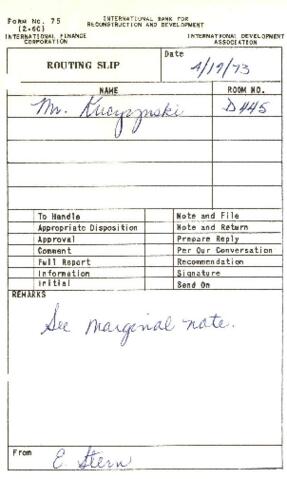 FORM NO. 75 INTERNATIONAL BANK FOR
(2-60) RECONSTRUCTION AND DEVELOPMENT
INTERNATIONAL FINANCE INTERNATIONAL DEVELOPMENT
CORPORATION ASSOCIATION
ROUTING SLIP Date
4/19/73
NAME ROOM NO.
Mr. Kuczynski D 445
To Handle Note and File
Appropriate Disposition Note and Return
Approval Prepare Reply
Comment Per Our Conversation
Full Report Recommendation
Information Signature
Initial Send On
REMARKS
See marginal note.
From E. Stern